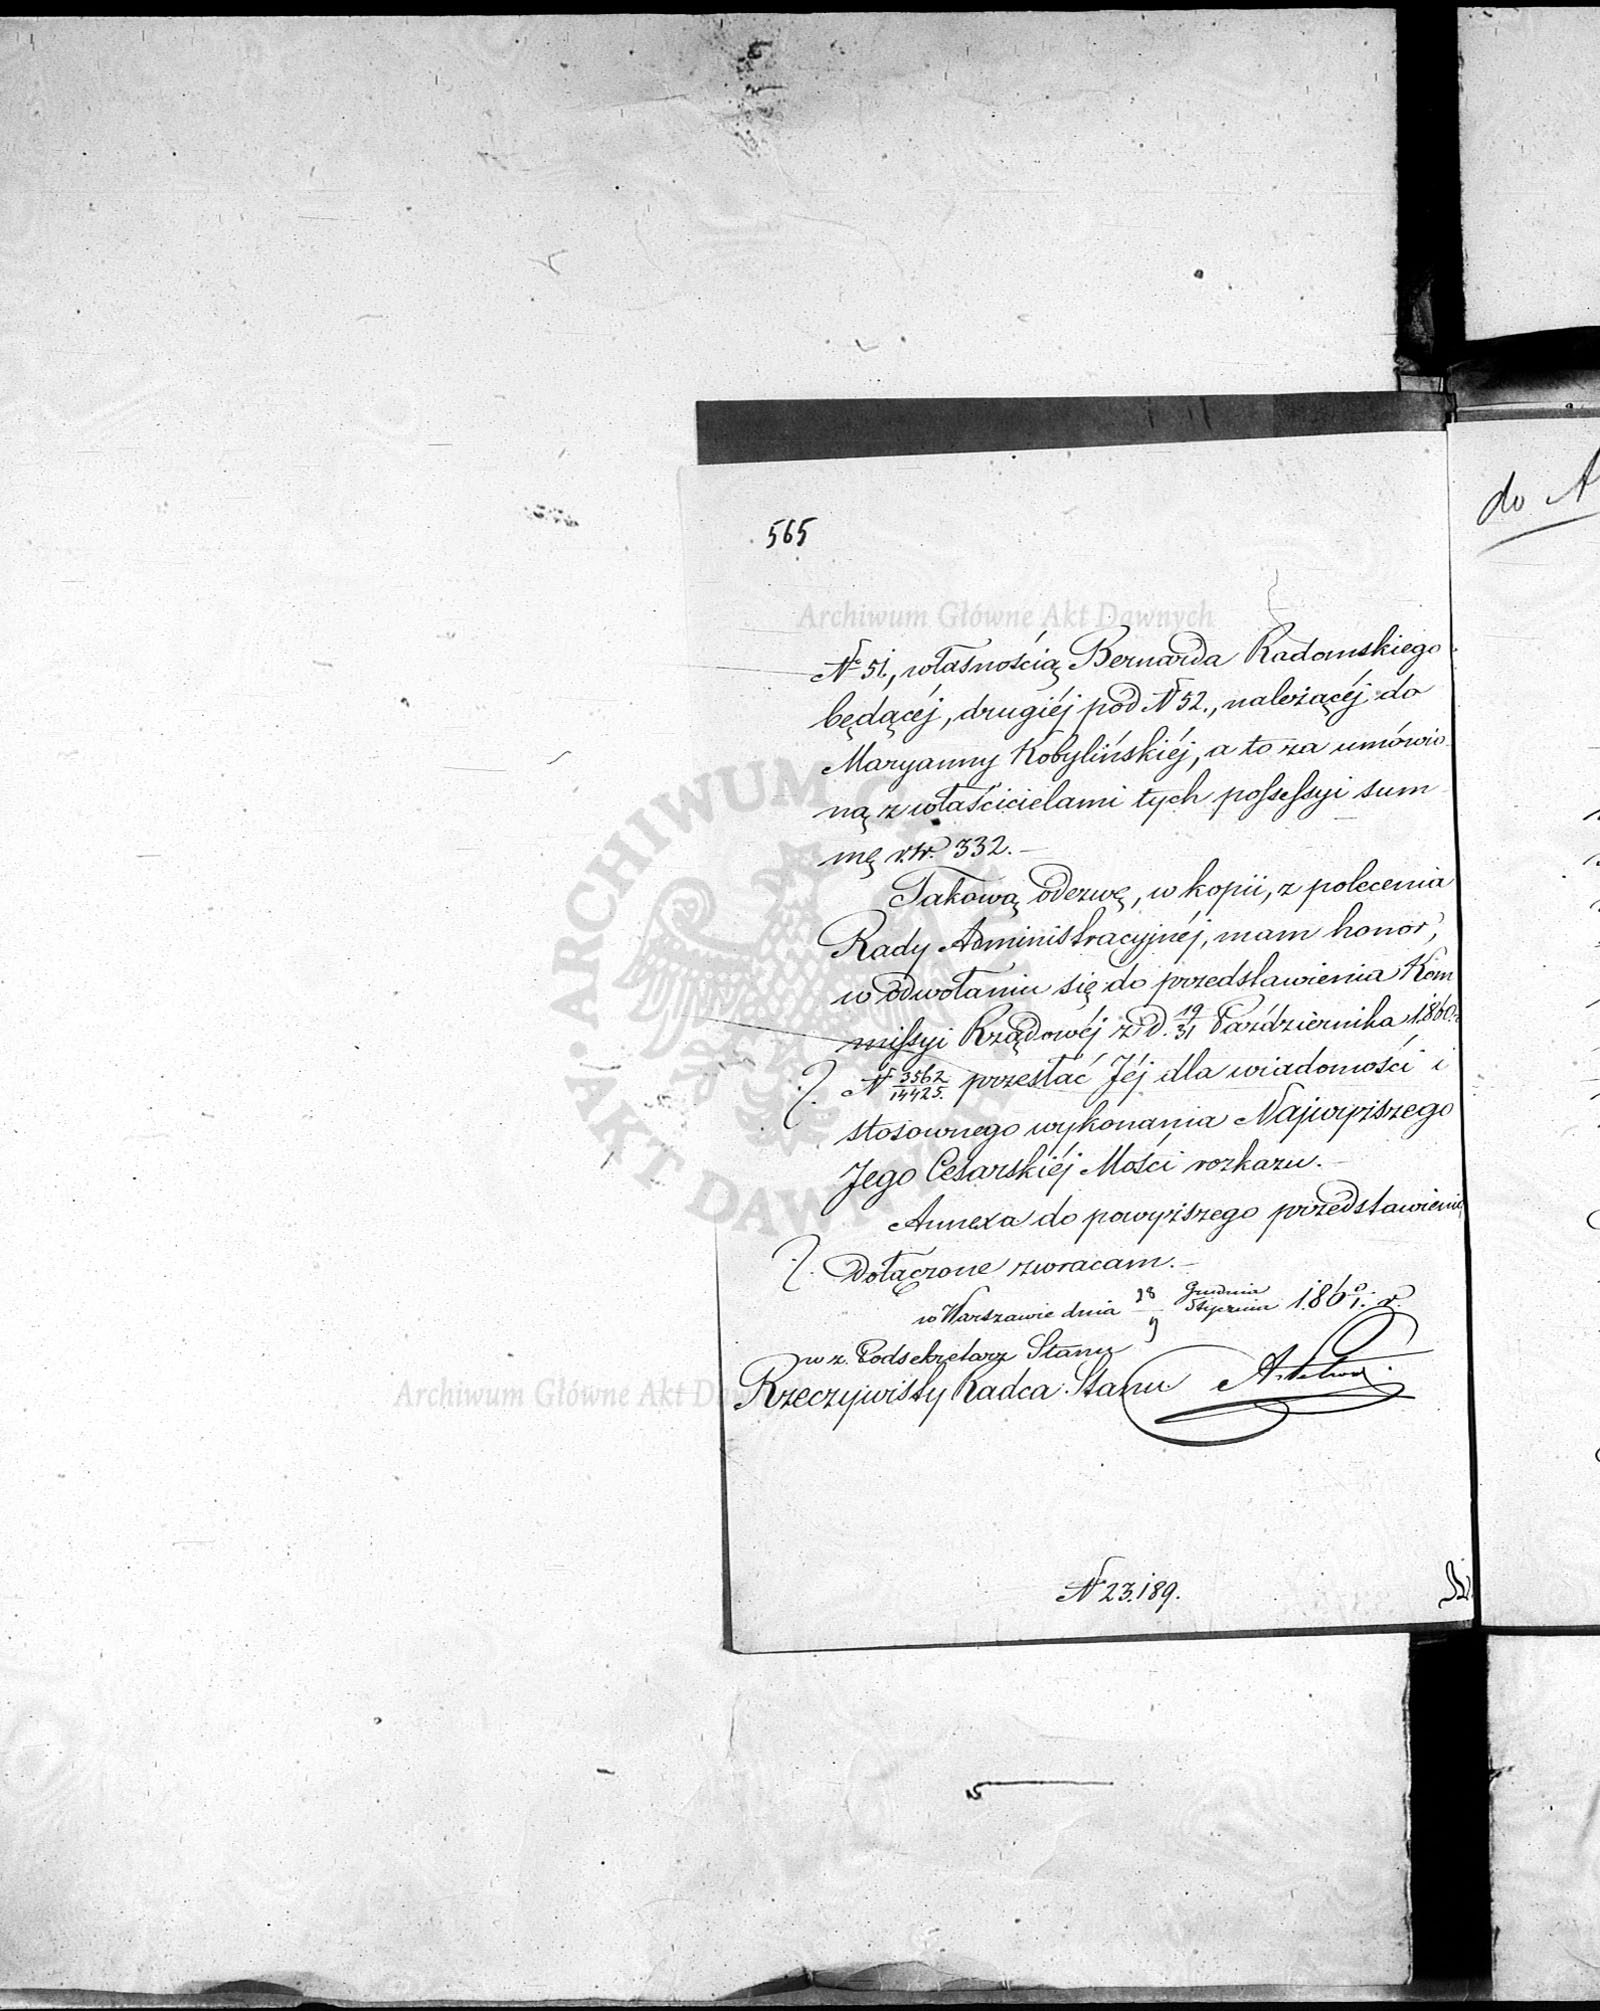 565
Archiwum Główne Akt Dawnych
№ 51., własnością Bernarda Radomskiego
będącéj, drugiéj pod № 52., należącéj do
Maryanny Kobylińskiéj, a to za umówio
ną z właścicielami tych possessyi sum
mę r.sr. 332.—
Takową odezwę, w kopii, z polecenia
Rady Administracyjnéj, mam honor,
w odwołaniu się do przedstawienia Kom
missyi Rządowéj z D. 19/31 Października 1860.
№ 3562/14425. przesłać Jéj dla wiadomości i
stosownego wykonania Najwyższego
Jego Cesarskiéj Mości rozkazu.—
Annexa do powyższego przedstawienia
dołączone zwracam.—
w Warszawie dnia 28/9 Grudnia/Stycznia 186 0/1. r.
w z. Podsekretarz Stanu
Rzeczywisty Radca Stanu
№ 23.189.
do A
ARCHIWUM GŁÓWNE AKT DAWNYCH
Archiwum Główne Akt Dawnych